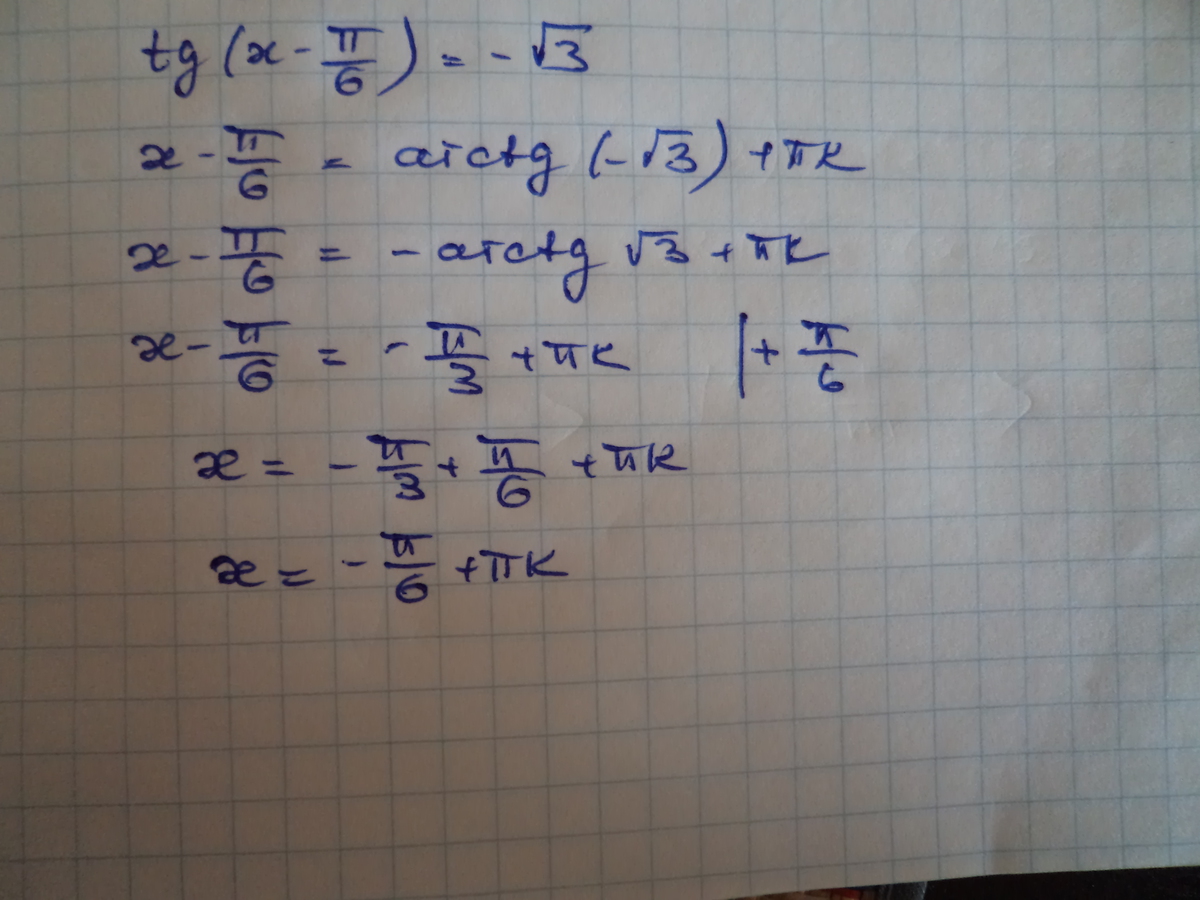 tg (x - π/6) = - √3
x - π/6 = arctg (-√3) + πk
x - π/6 = - arctg √3 + πk
x - π/6 = - π/3 + πk | + π/6
x = - π/3 + π/6 + πk
x = - π/6 + πk